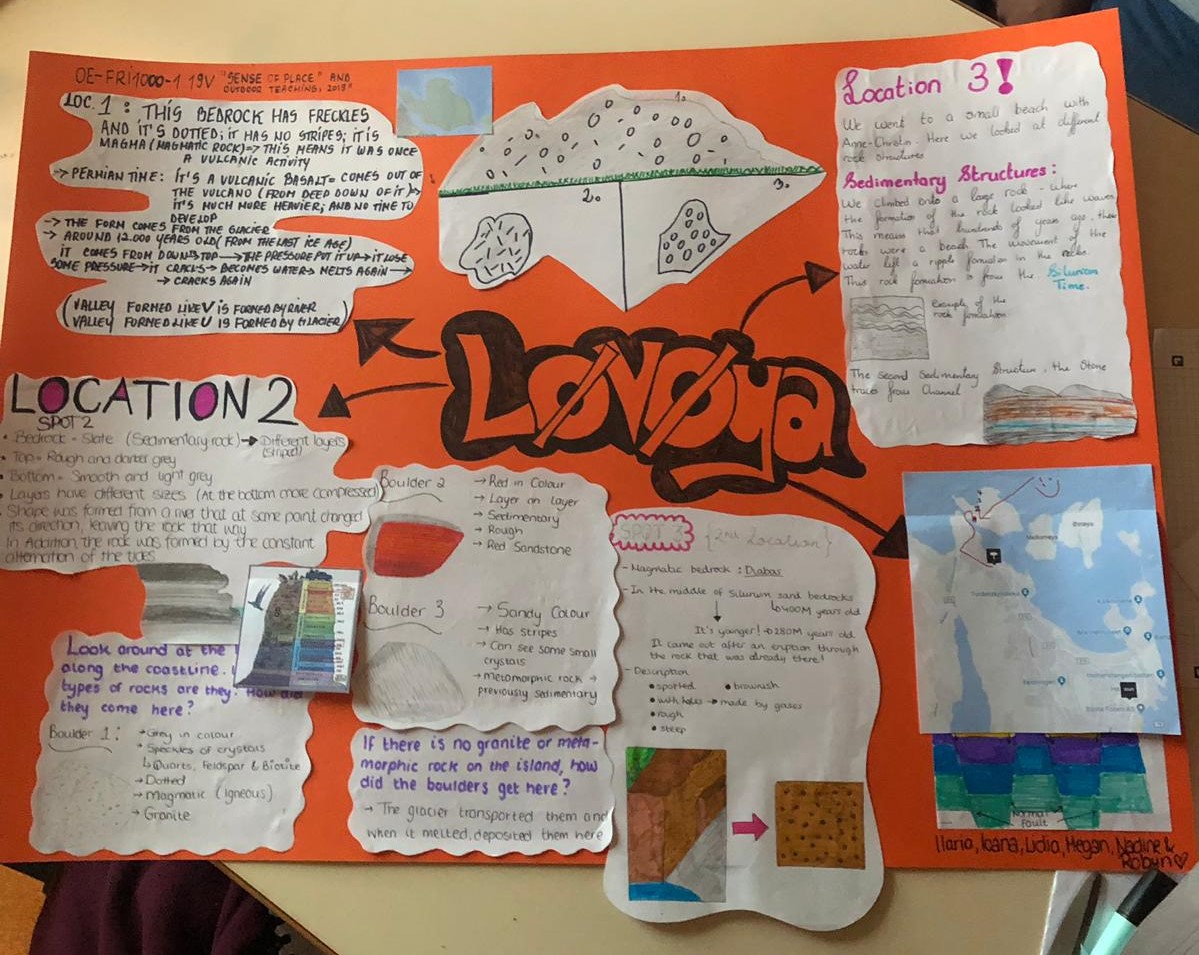 OE-FRI1000-1 19V "SENSE OF PLACE" AND
OUTDOOR TEACHING, 2019"
LOC. 1 : THIS BEDROCK HAS FRECKLES
AND IT'S DOTTED; IT HAS NO STRIPES; IT IS
MAGMA (MAGMATIC ROCK)=> THIS MEANS IT WAS ONCE
A VULCANIC ACTIVITY
-> PERMIAN TIME: IT'S A VULCANIC BASALT= COMES OUT OF
THE VULCANO (FROM DEEP DOWN OF IT)
IT'S MUCH MORE HEAVIER; AND NO TIME TO
DEVELOP
-> THE FORM COMES FROM THE GLACIER
-> AROUND 12.000 YEARS OLD (FROM THE LAST ICE AGE)
IT COMES FROM DOWN TOP -> THE PRESSURE PUT IT UP -> IT LOSE
SOME PRESSURE -> IT CRACKS -> BECOMES WATER -> MELTS AGAIN ->
-> CRACKS AGAIN
(VALLEY FORMED LIKE V IS FORMED BY RIVER
VALLEY FORMED LIKE U IS FORMED BY GLACIER)
1.
2.
3.
Location 3!
We went to a small beach with
Anne-Christin. Here we looked at different
rock structures
Sedimentary Structures:
We climbed onto a large rock - when
the formation of the rock looked like waves
This means that hundreds of years ago, these
rocks were a beach. The movement of the
water left a ripple formation in the rocks.
This rock formation is from the Silurian
Time.
Example of the
rock formation
The second Sedimentary Structure, the Stone
traces from Channel
LØVØya
LOCATION 2
SPOT 2
• Bedrock = Slate (Sedimentary rock) -> Different layers
(striped)
• Top = Rough and darker grey
• Bottom = Smooth and light grey
• Layers have different sizes (At the bottom more compressed)
• Shape was formed from a river that at some point changed
its direction, leaving the rock that way
In Addition, the rock was formed by the constant
alternation of the tides
Look around at the
along the coastline.
types of rocks are they? How did
they come here?
Boulder 1: -> Grey in colour
-> Speckles of crystals
↳ Quarts, Feldspar & Biotite
-> Dotted
-> Magmatic (Igneous)
-> Granite
Boulder 2 -> Red in Colour
-> Layer on layer
-> Sedimentary
-> Rough
-> Red Sandstone
Boulder 3 -> Sandy Colour
-> Has stripes
-> Can see some small
crystals
-> Metamorphic rock ->
previously sedimentary
If there is no granite or meta-
morphic rock on the island, how
did the boulders get here?
-> The glacier transported them and
when it melted, deposited them here
SPOT 3 {2nd Location}
- Magmatic bedrock : Diabas
- In the middle of Silurum sand bedrocks
↳ 400M years old
It's younger! -> 280M years old
It came out after an eruption through
the rock that was already there!
- Description
• spotted • brownish
• with holes -> made by gases
• rough
• steep
Normal
Fault
Ilaria, Ioana, Lidia, Megan, Nadine &
Robyn ♡